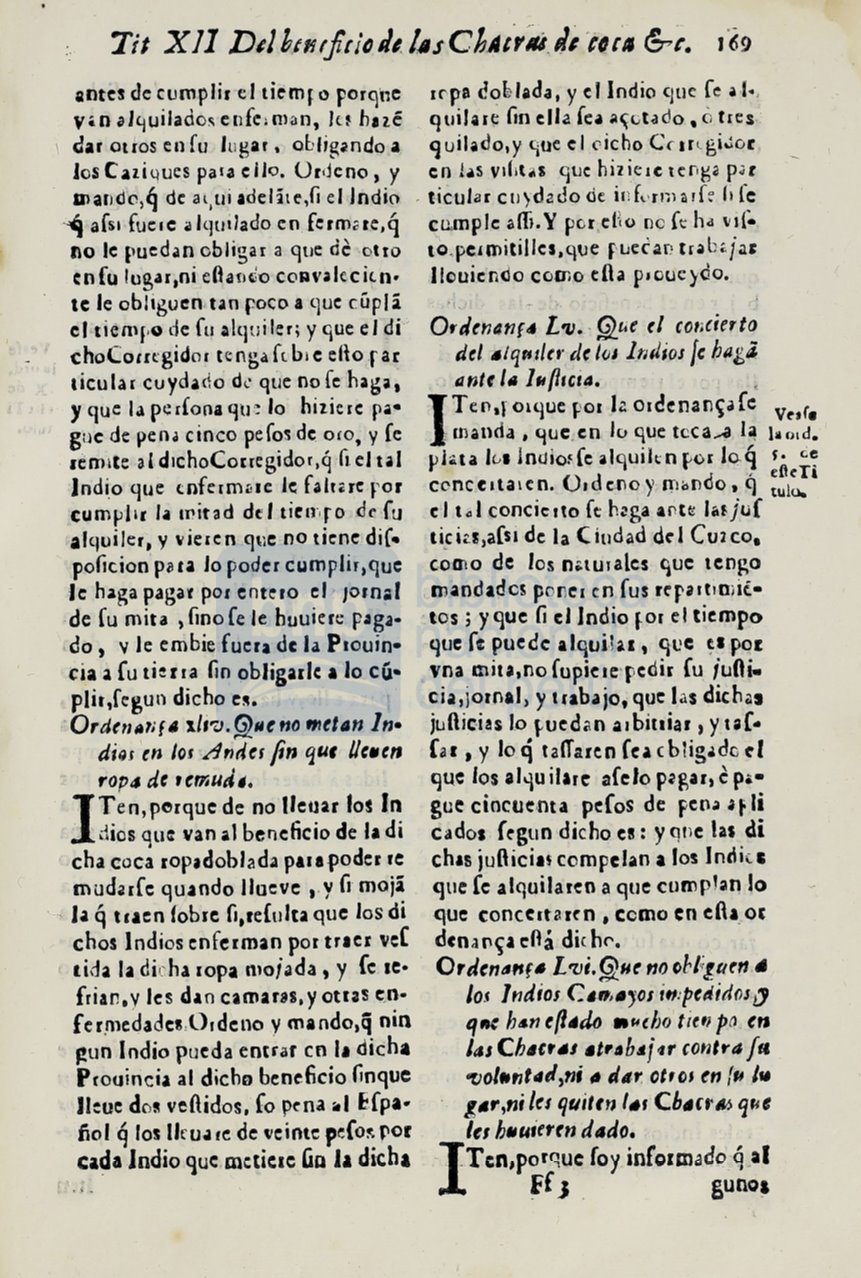 Tit XII Del beneficio de las Chacras de coca &c. 169
antes de cumplir el tiempo porque
van alquilados enferman, les hazẽ
dar otros en su lugar, obligando a
los Caziques para ello. Ordeno, y
mando, q̃ de aqui adelãte, si el Indio
q̃ assi fuere alquilado en fermare, q̃
no le puedan obligar a que dè otro
en su lugar, ni estando convalecien-
te le obliguen tan poco a que cũplã
el tiempo de su alquiler; y que el di
cho Corregidor tenga sobre esto par
ticular cuydado de que no se haga,
y que la persona que lo hiziere pa-
gue de pena cinco pesos de oro, y se
remite al dicho Corregidor, q̃ si el tal
Indio que enfermare le faltare por
cumplir la mitad del tiempo de su
alquiler, y vieren que no tiene dis-
posicion para lo poder cumplir, que
le haga pagar por entero el jornal
de su mita, sino se le huuiere paga-
do, y le embie fuera de la Prouin-
cia a su tierra sin obligarle a lo cũ-
plir, segun dicho es.
Ordenança xliv. Que no metan In-
dios en los Andes sin que lleuen
ropa de remuda.
ITen, porque de no lleuar los In
dios que van al beneficio de la di
cha coca ropa doblada para poder re
mudarse quando llueve, y si mojã
la q̃ traen sobre si, resulta que los di
chos Indios enferman por traer ves
tida la dicha ropa mojada, y se re-
frian, y les dan camaras, y otras en-
fermedades. Ordeno y mando, q̃ nin
gun Indio pueda entrar en la dicha
Prouincia al dicho beneficio sinque
lleue dos vestidos, so pena al Espa-
ñol q̃ los lleuare de veinte pesos por
cada Indio que metiere sin la dicha
ropa doblada, y el Indio que se al-
quilare sin ella sea açotado, o tres
quilado, y que el dicho Corregidor
en las visitas que hiziere tenga par
ticular cuydado de informarse si se
cumple assi. Y por esto no se ha vis-
to permitilles, que puedan trabajar
llouiendo como esta proueydo.
Ordenança Lv. Que el concierto
del alquiler de los Indios se hagã
ante la Iusticia.
ITen, porque por la ordenança se
manda, que en lo que toca a la
plata los Indios se alquilen por lo q̃
concertaren. Ordeno y mando, q̃
el tal concierto se haga ante las jus
ticias, assi de la Ciudad del Cuzco,
como de los naturales que tengo
mandados poner en sus repartimiẽ-
tos; y que si el Indio por el tiempo
que se puede alquilar, que es por
vna mita, no supiere pedir su justi-
cia, jornal, y trabajo, que las dichas
justicias lo puedan arbitriar, y tas-
sar, y lo q̃ tassaren sea obligado el
que los alquilare aselo pagar, è pa-
gue cincuenta pesos de pena apli
cados segun dicho es: y que las di
chas justicias compelan a los Indios
que se alquilaren a que cumplan lo
que concertaren, como en esta or
denança està dicho.
Vease
la ord.
5. de
este Ti
tulo.
Ordenança Lvi. Que no obliguen a
los Indios Camayos impedidos, y
que han estado mucho tiempo en
las Chacras a trabajar contra su
voluntad, ni a dar otros en su lu
gar, ni les quiten las Chacras que
les huuieren dado.
ITen, porque soy informado q̃ al
Ff 3 gunos